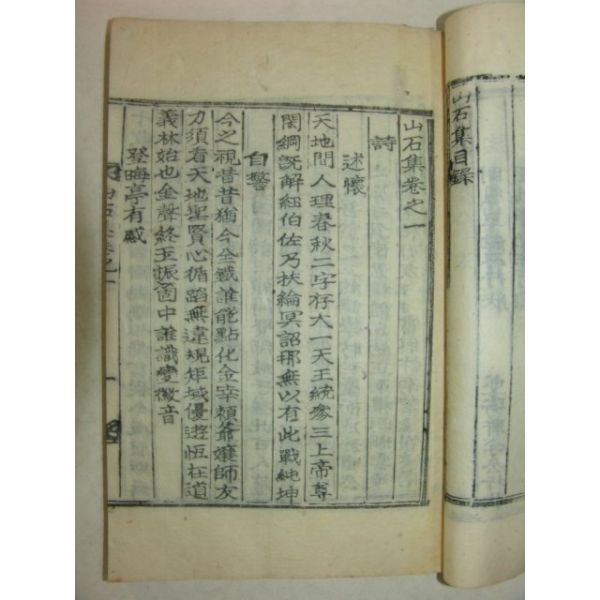 山石集目錄
山石集卷之一
詩
述懷
天地間人理春秋二字存大一天王統參三上帝尊
閑綱旣解紐伯佐乃扶綸冥詔耶無以有此戰純坤
自警
今之視昔昔猶今全鐵誰能點化金宰賴爺孃師友
力須看天地聖賢心循蹈無違規矩域優遊恆在道
義林始也金聲終玉振箇中誰識變徵音
登晦亭有感